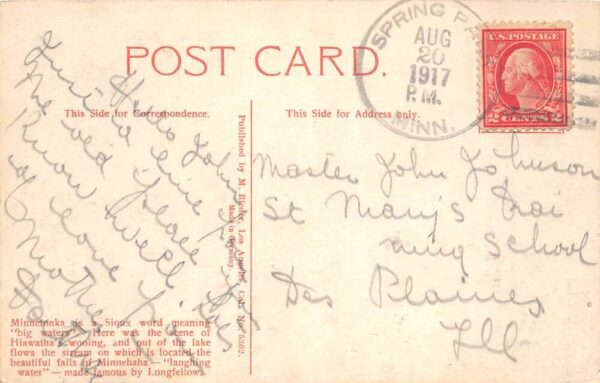 POST CARD.
SPRING PA
AUG
20
1917
P.M.
MINN.
U.S. POSTAGE
2 CENTS 2
This Side for Correspondence.
This Side for Address only.
Hello John
Just a line
the old place
know well. Lots
of love
Mother
Published by M. Rieder, Los Angeles, Cal. No. 5362.
Made in Germany.
Master John Johnson
St Mary's Trai
ning School
Des Plaines
Ill
Minnetonka is a Sioux word meaning
"big waters". Here was the scene of
Hiawatha's wooing, and out of the lake
flows the stream on which is located the
beautiful falls of Minnehaha — "laughing
water" — made famous by Longfellow.